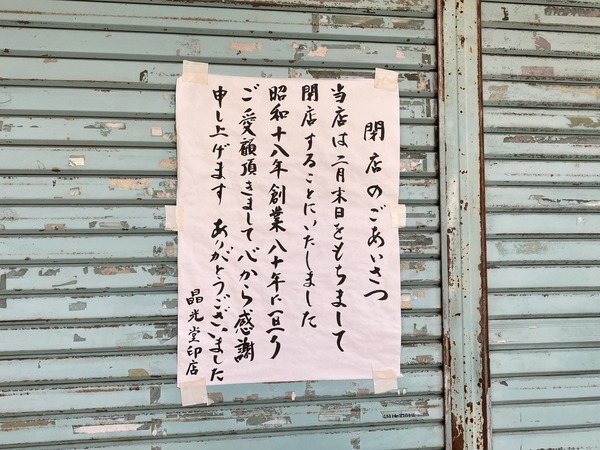 閉店のごあいさつ
当店は二月末日をもちまして
閉店することにいたしました
昭和十八年創業 八十年に亘り
ご愛顧頂きまして心から感謝
申し上げます ありがとうございました
晶光堂印店